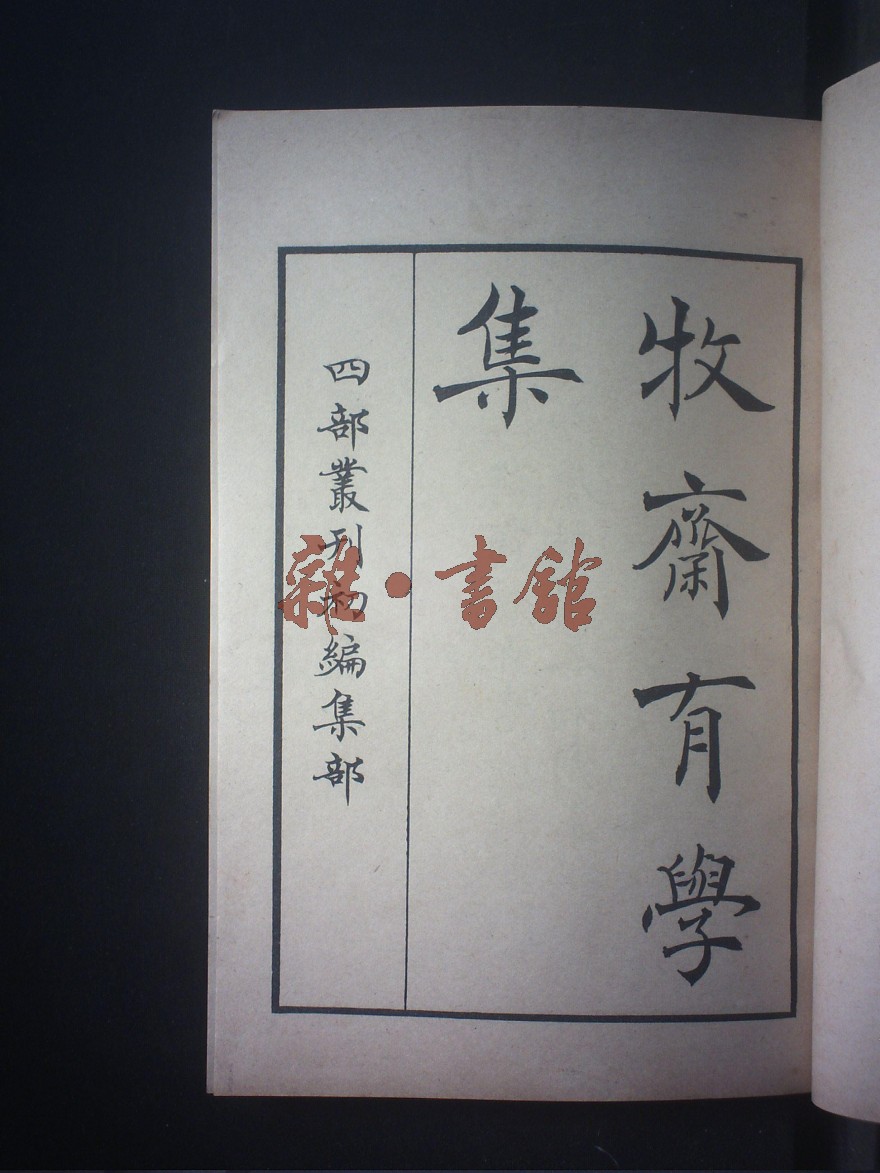 牧齋有學
集
四部叢刊初編集部
雜·書館